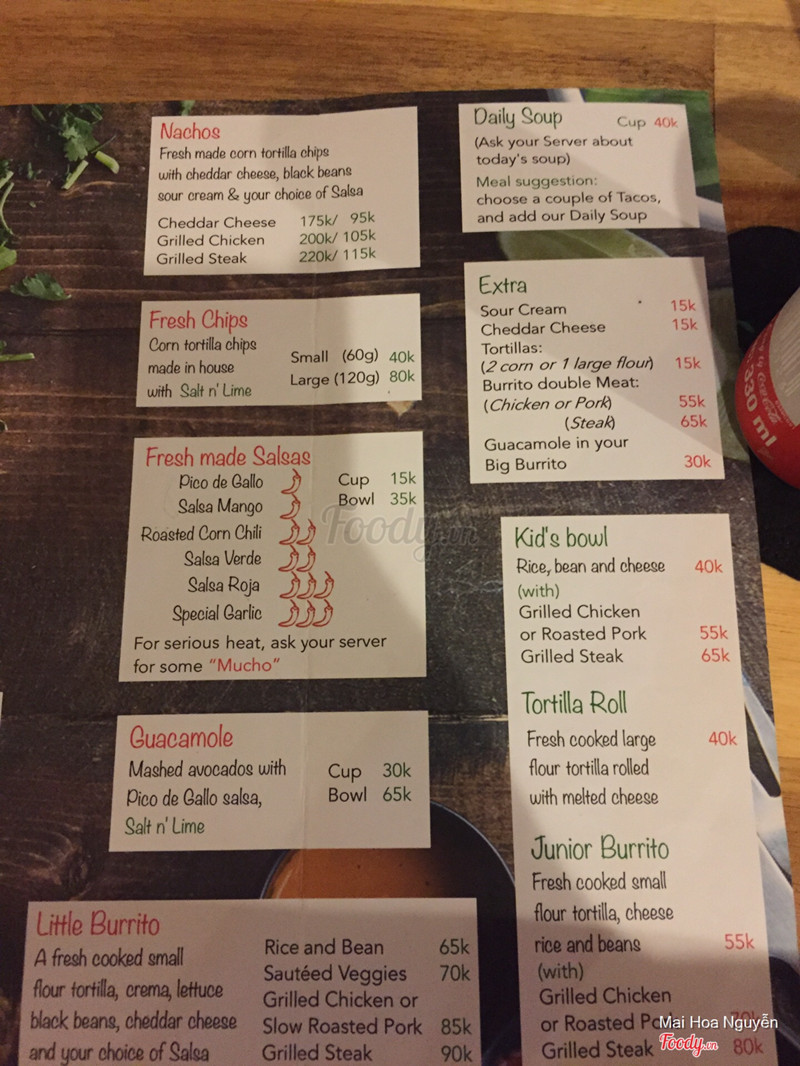 Nachos
Fresh made corn tortilla chips
with cheddar cheese, black beans
sour cream & your choice of Salsa
Cheddar Cheese 175k/ 95k
Grilled Chicken 200k/ 105k
Grilled Steak 220k/ 115k
Fresh Chips
Corn tortilla chips
made in house
with Salt n' Lime
Small (60g) 40k
Large (120g) 80k
Fresh made Salsas
Pico de Gallo
Salsa Mango
Roasted Corn Chili
Salsa Verde
Salsa Roja
Special Garlic
Cup 15k
Bowl 35k
For serious heat, ask your server
for some "Mucho"
Guacamole
Mashed avocados with
Pico de Gallo salsa,
Salt n' Lime
Cup 30k
Bowl 65k
Little Burrito
A fresh cooked small
flour tortilla, crema, lettuce
black beans, cheddar cheese
and your choice of Salsa
Rice and Bean 65k
Sautéed Veggies 70k
Grilled Chicken or
Slow Roasted Pork 85k
Grilled Steak 90k
Daily Soup Cup 40k
(Ask your Server about
today's soup)
Meal suggestion:
choose a couple of Tacos,
and add our Daily Soup
Extra
Sour Cream 15k
Cheddar Cheese 15k
Tortillas:
(2 corn or 1 large flour) 15k
Burrito double Meat:
(Chicken or Pork) 55k
(Steak) 65k
Guacamole in your
Big Burrito 30k
Kid's bowl
Rice, bean and cheese 40k
(with)
Grilled Chicken
or Roasted Pork 55k
Grilled Steak 65k
Tortilla Roll
Fresh cooked large 40k
flour tortilla rolled
with melted cheese
Junior Burrito
Fresh cooked small
flour tortilla, cheese
rice and beans 55k
(with)
Grilled Chicken
or Roasted Pork 70k
Grilled Steak 80k
330 ml
Foody.vn
Mai Hoa Nguyễn
Foody.vn